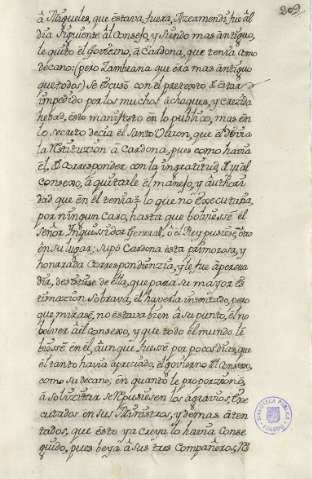 209
à Naguiles, que estava fuera, Arzeamendi, fue al
dia siguiente al Consejo, y siendo mas antiguo,
le quitó el govierno, à Cardona, que tenia como
decano: (pero Zambrana que era mas antiguo
que todos) se escusó con el pretexto de estar
impedido por los muchos achaques, y crezida
hedad, esto manifestó en lo publico, mas en
lo secreto decia el Santo Varon, que el devia
la restituzion à Cardona, pues como havia
el de corresponder con la ingratitud
consejo, à quitarle el manejo, y authori
dad que en el tenia; lo que no executaria
por ningun caso, hasta que bolviesse el
Señor Inquisidor General, ò el Rey pusiesse otro
en su lugar; supo Cardona esta primorosa, y
honrrada correspondenzia, y le fue à persua
dir, desistiese de ella, que para su mayor es
timazion sobrava, el haverla intentado, pero
que mirase, no estava bien à su punto, el no
bolver al consejo, y que todo el mundo le
biesse en el, aunque fuesse por pocos dias, que
el tanto havia apreciado, el govierno del Consejo,
como su decano, en quanto le proporcionò,
à solicitar se repusiesen los agravios, exe
cutados en sus Ministros, y demas aten
tados, que esto ya creya lo havia conse
guido, pues beya à sus tres compañeros,